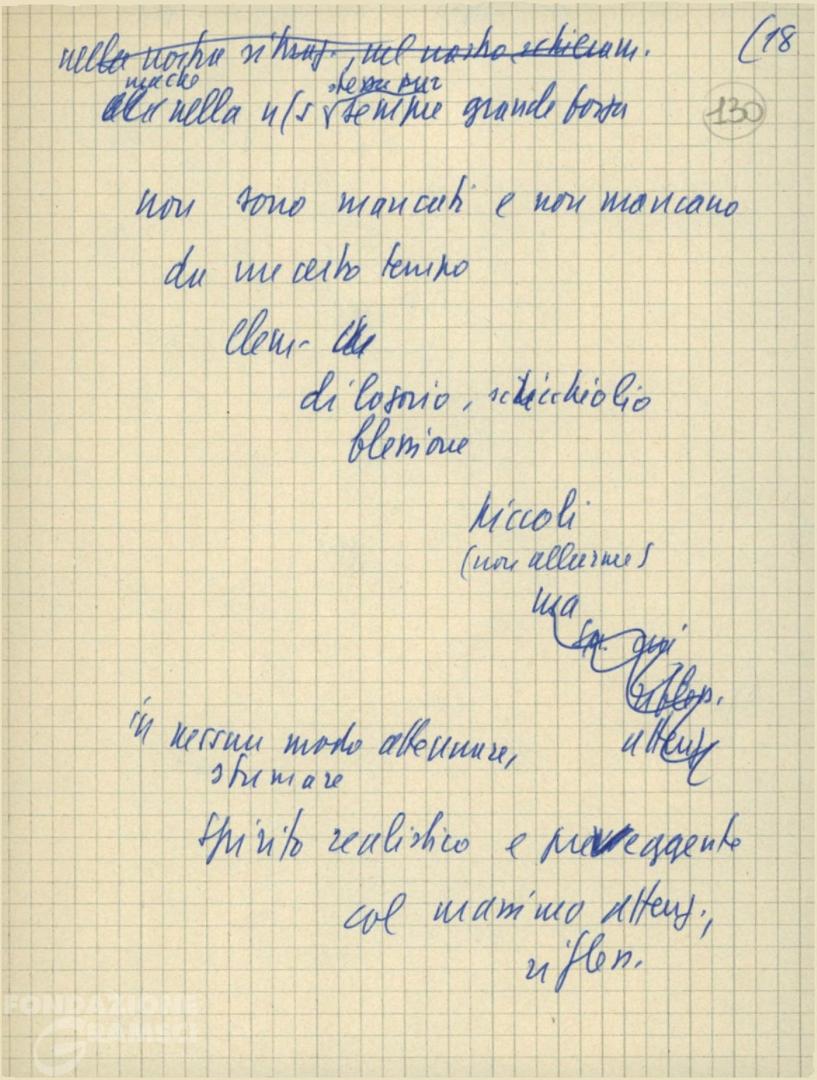 nella nostra situaz., nel nostro schieram. (18
anche stessa pur
nella n/s sempre grande forza 130
non sono mancati e non mancano
da un certo tempo
elem.
di logorio, scricchiolio
flessione
piccoli
(non allarme)
ma
rifless.
in nessun modo attenuare, attenz
sfumare
spirito realistico e preveggente
col massimo attenz.,
rifless.
FONDAZIONE
GRAMSCI